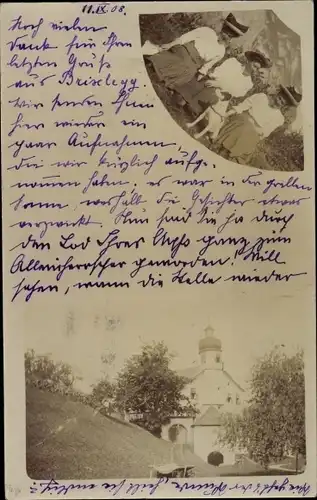 11. IX. 08.
Noch vielen
Dank für Ihren
letzten Gruß
aus Brixlegg.
Wir senden Ihnen
hier wieder ein
paar Aufnahmen,
die wir kürzlich aufge-
nommen haben, es war in der grellen
Sonne, weshalb die Gesichter etwas
verzwickt. Nun sind Sie ja durch
den Tod Ihres Chefs ganz zum
Alleinherrscher geworden! Will
sehen, wann die Stelle wieder